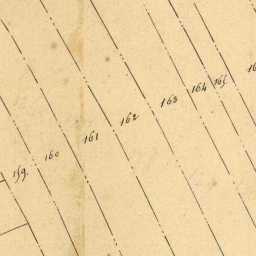 159.
160
161
162
163
164
165